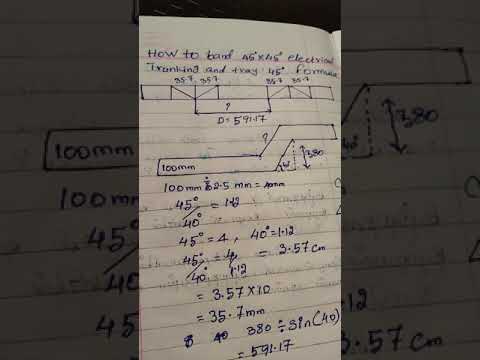 How to band 45°×45° electrical
Trunking and tray 45° formula
35.7 35.7 35.7 35.7
?
D=591.17
?
100mm
40°
380
40°
380
100mm÷2.5mm=40mm
45°/40° = 1.12
45°=4, 40°=1.12
45°/40° = 4/1.12 = 3.57cm
= 3.57×10
= 35.7mm
380÷Sin(40)
=591.17
1.12